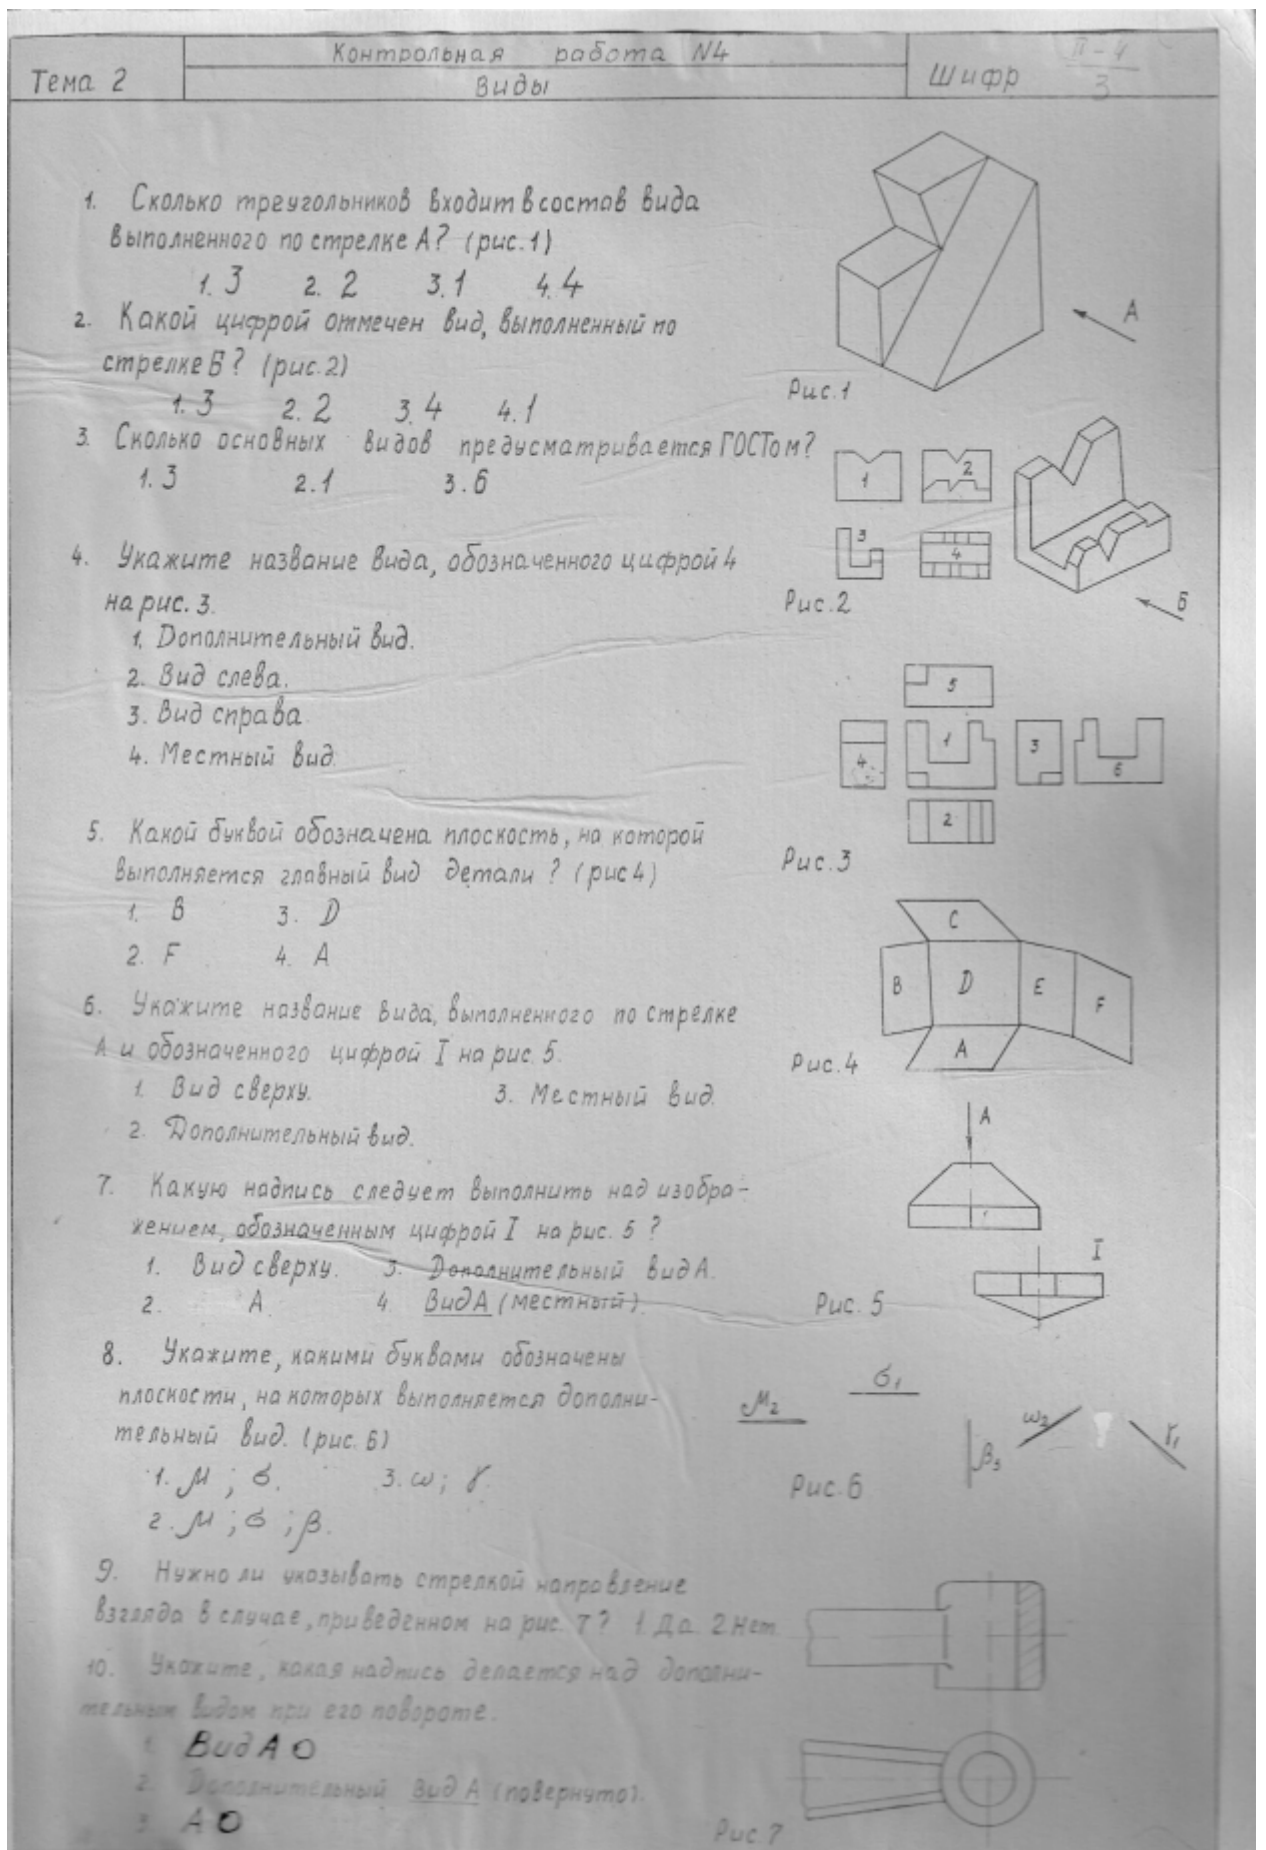 Тема 2
Контрольная работа N4
Виды
Шифр П-4/3
1. Сколько треугольников входит в состав вида
выполненного по стрелке А? (рис. 1)
1. 3 2. 2 3. 1 4. 4
2. Какой цифрой отмечен вид, выполненный по
стрелке Б? (рис. 2)
1. 3 2. 2 3. 4 4. 1
3. Сколько основных видов предусматривается ГОСТом?
1. 3 2. 1 3. 6
4. Укажите название вида, обозначенного цифрой 4
на рис. 3.
1. Дополнительный вид.
2. Вид слева.
3. Вид справа
4. Местный вид.
5. Какой буквой обозначена плоскость, на которой
выполняется главный вид детали? (рис 4)
1. B 3. D
2. F 4. A
6. Укажите название вида, выполненного по стрелке
А и обозначенного цифрой I на рис. 5.
1. Вид сверху. 3. Местный вид.
2. Дополнительный вид.
7. Какую надпись следует выполнить над изобра-
жением, обозначенным цифрой I на рис. 5?
1. Вид сверху. 3. Дополнительный вид А.
2. А. 4. Вид А (местный).
8. Укажите, какими буквами обозначены
плоскости, на которых выполняется дополни-
тельный вид. (рис. 6)
1. μ; σ. 3. ω; γ.
2. μ; σ; β.
9. Нужно ли указывать стрелкой направление
взгляда в случае, приведенном на рис. 7? 1. Да. 2. Нет.
10. Укажите, какая надпись делается над дополни-
тельным видом при его повороте.
1. Вид А
2. Дополнительный вид А (повернуто).
3. А
А
Рис. 1
1
2
3
4
Б
Рис. 2
5
4
1
3
6
2
Рис. 3
C
B
D
E
F
A
Рис. 4
А
I
Рис. 5
μ2
σ1
β3
ω2
γ1
Рис. 6
Рис. 7